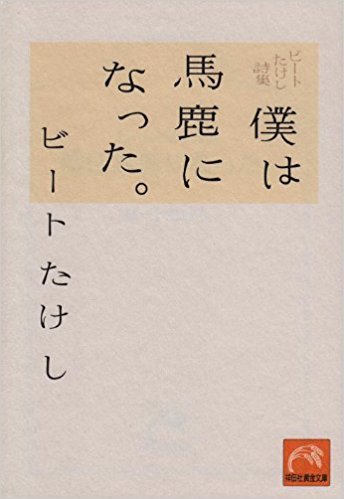 ビート
たけし
詩集
僕は
馬鹿に
なった。
ビートたけし
祥伝社黄金文庫